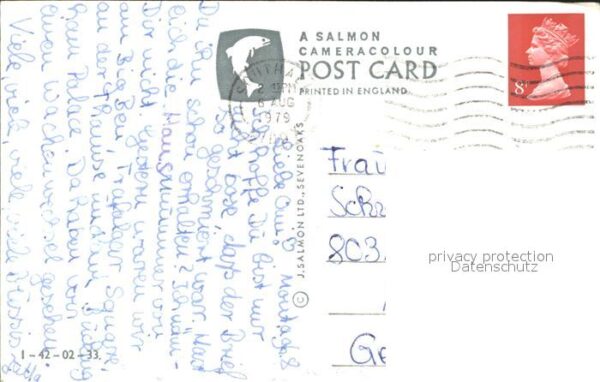 A SALMON
CAMERACOLOUR
POST CARD
PRINTED IN ENGLAND
8P
6 AUG
1979
© J. SALMON LTD., SEVENOAKS
Montag 6.8
Liebe Omi!
Ich hoffe Du bist mir
nicht böse, daß der Brief
so geschmiert war. Hast
Du ihn schon erhalten?
Dir nicht gestern waren wir
am Big Ben, Trafalgar Square,
an der Themse und am Bucking
ham Palace. Da haben wir
einen Wachenwechsel gesehen.
Viele viele, viele viele Bussis
Frau
803
Ge
privacy protection
Datenschutz
1-42-02-33.